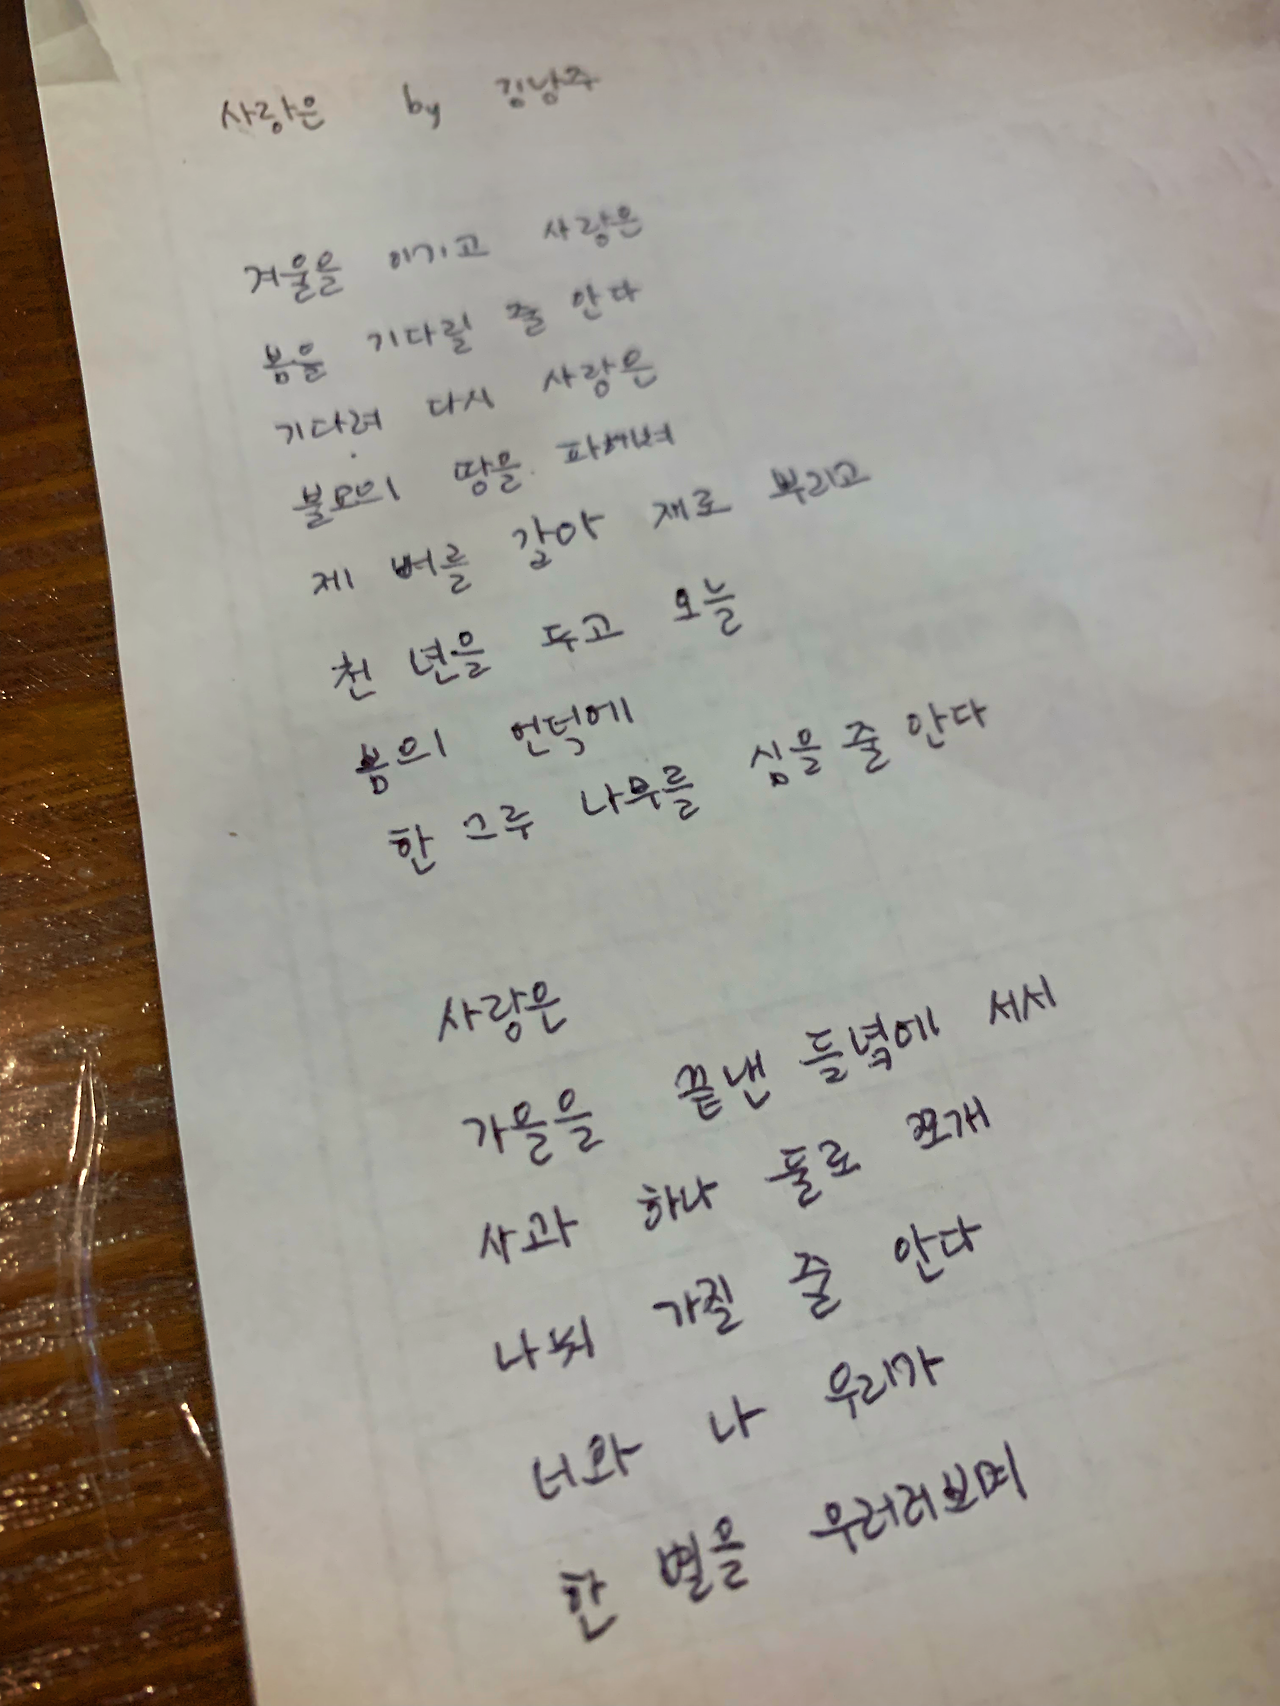 사랑은 by 김남주
겨울을 이기고 사랑은
봄을 기다릴 줄 안다
기다려 다시 사랑은
불모의 땅을 파헤쳐
제 뼈를 갈아 재로 뿌리고
천 년을 두고 오늘
봄의 언덕에
한 그루 나무를 심을 줄 안다
사랑은
가을을 끝낸 들녘에 서서
사과 하나 둘로 쪼개
나눠 가질 줄 안다
너와 나 우리가
한 별을 우러러보며